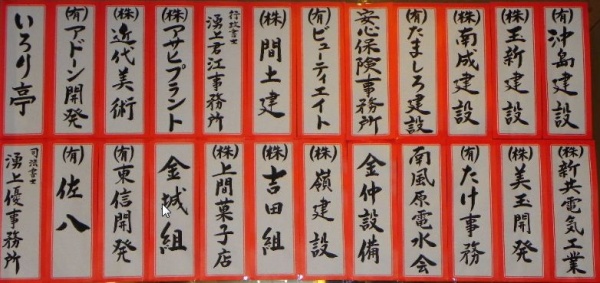 (有)沖島建設
(株)玉新建設
(株)南成建設
(有)たましろ建設
安心保険事務所
(有)ビューティエイト
(株)間土建
行政書士 湧上君江事務所
(株)アサヒプラント
(株)近代美術
(有)アドーン開発
いろり亭
(株)新共電気工業
(株)美玉開発
(有)たけ事務
南風原電水会
金仲設備
(株)嶺建設
(株)吉田組
(株)上間菓子店
金城組
(有)東信開発
(有)佐八
司法書士 湧上優事務所